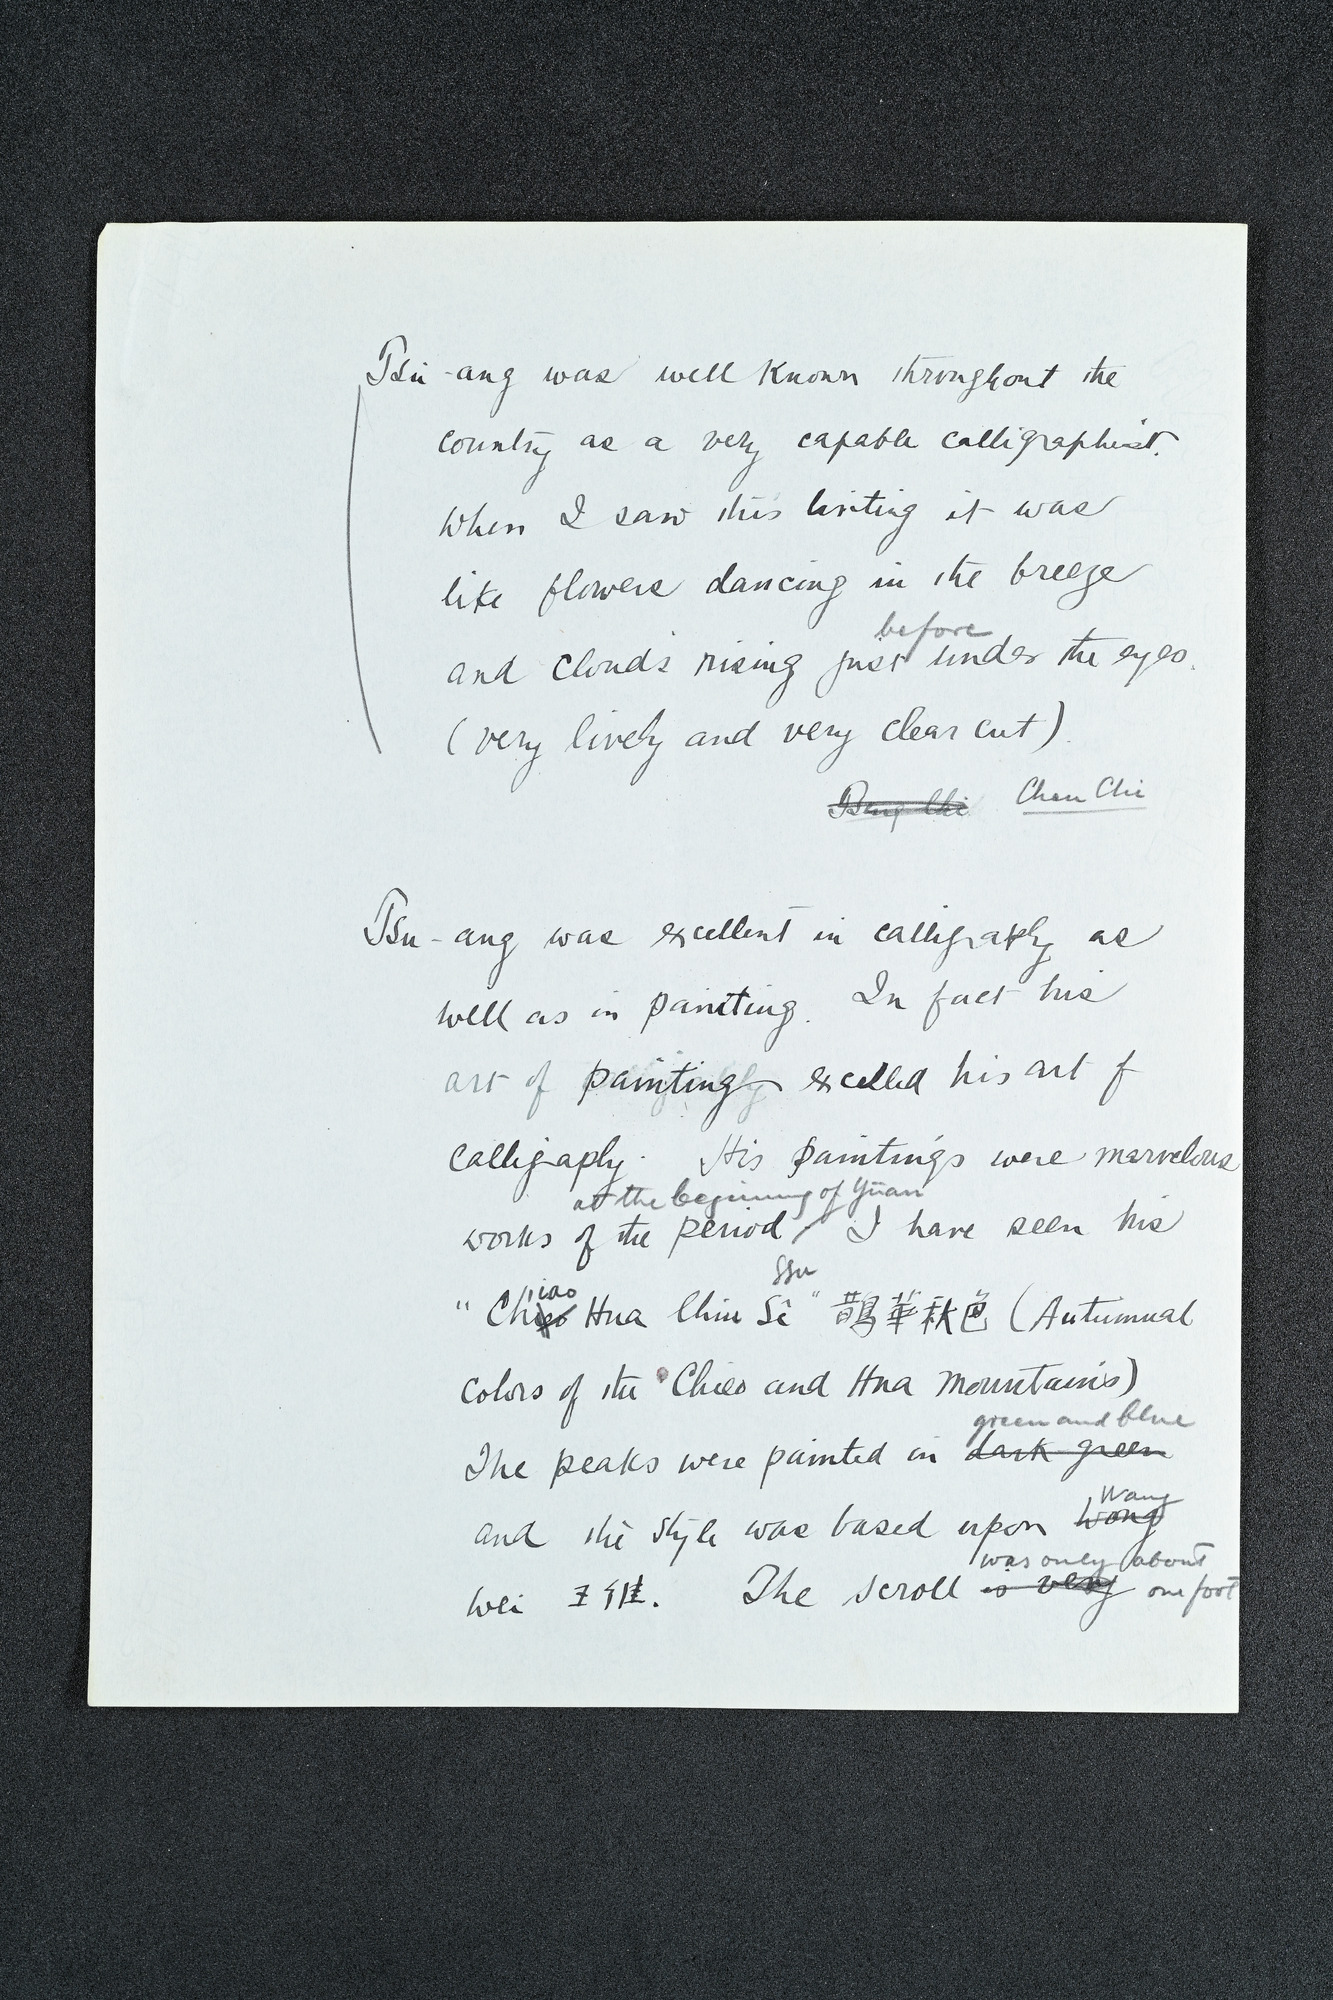 Tsu-ang was well known throughout the
country as a very capable calligraphist.
When I saw this writing it was
like flowers dancing in the breeze
before
and clouds rising just under the eyes.
(very lively and very clear cut).
Chen Chi
Tsu-ang was excellent in calligraphy as
well as in painting. In fact his
art of painting excelled his art of
calligraphy. His paintings were marvelous
at the beginning of Yüan
works of the period, I have seen his
iao Ssu
"Chiao Hua Chiu Sê" 鵲華秋色 (Autumnal
colors of the Chiao and Hua Mountains)
green and blue
The peaks were painted in dark green
Wang
and the style was based upon Wong
was only about
Wei 王維. The scroll is very one foot